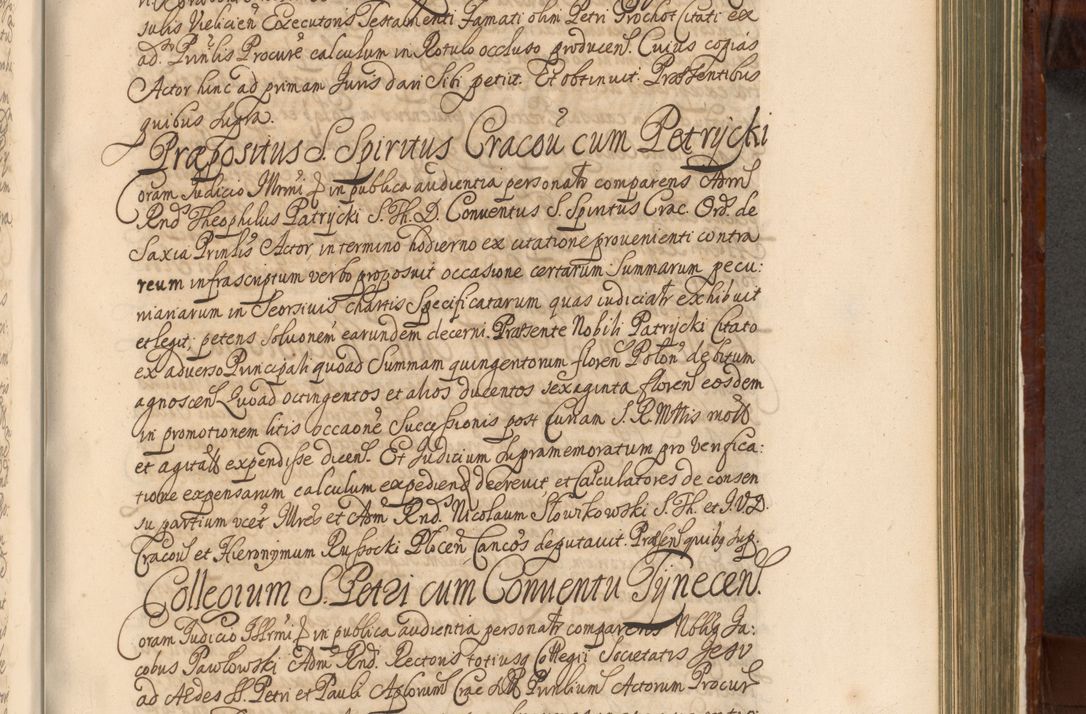 sulis Velicien Executoris Testamenti Famati olim Petri Prochot Citati ex
adº Prinlis Procure calculum in Rotulo occluso producen. Cuius copias
Actor hinc ad primam Juris dari Sibi petiit. Et obtinuit. Præsentibus
quibus supra.
Præpositus S. Spiritus Cracou cum Petrycki
Coram Judicio Illrmi & in publica audientia personalr comparens Adm
Rnd Theophilus Patrycki S. Th. D. Conuentus S. Spiritus Crac. Ord. de
Saxia Prinlis Actor, in termino hodierno ex citatione prouenienti contra
reum infrascriptum verbo proposuit occasione certarum Summarum pecu:
niariarum in Seorsiuis chartis Specificatarum quas iudicialr exhibuit
et legit, petens soluonem earundem decerni. Præsente Nobili Patrycki Citato
ex aduerso Principali quoad Summam quingentorum floren Polon debitum
agnoscen Quoad octingentos et alios ducentos sexaginta floren eosdem
in promotionem litis occaone Successionis post Curiam S. R. Mttis
et agitatt expendisse dicen. Et Judicium supramemoratum pro verifica:
tione expensarum calculum expediend decreuit, et Calculatores de consen
su partium vcet Illres et Adm Rnd. Nicolaum Slowikowski S. Th. et J. V. D.
Cracou et Hieronymum Russocki Plocen Cancos deputauit. Præsen quibus sup.
Collegium S. Petri cum Conuentu Tynecen.
Coram Judicio Illrmi & in publica audientia personalr comparens Nobilis Ja:
cobus Pawlowski Adm Rnd. Rectoris totiusq Collegii Societatis Jesu
ad Ædes SS. Petri et Pauli Aplorum Crac Prinlium Actorum Procur